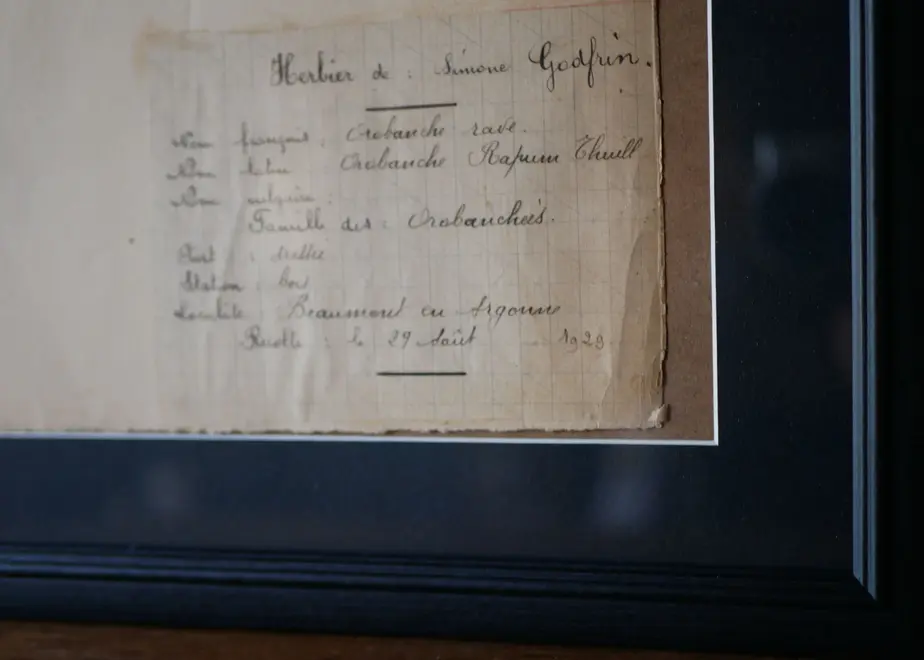 Herbier de : Simone Godfrin.
Nom français : Orobanche rave.
Nom latin Orobanche Rapum Thuill
Nom vulgaire :
Famille des : Orobanchées.
Station : bois
Localité : Beaumont en Argonne
Récolte : le 29 Août 1928